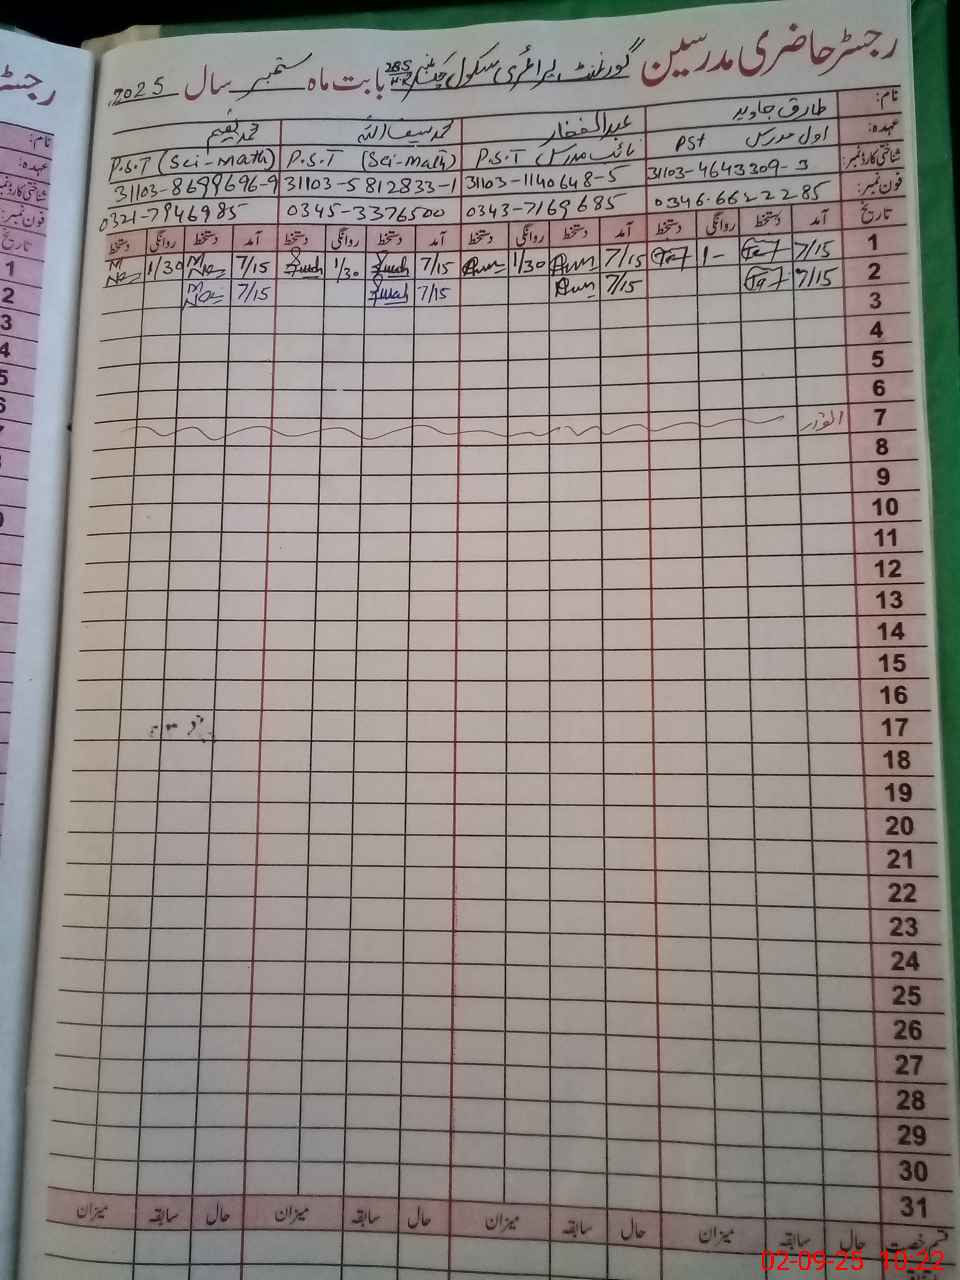 رجسٹر حاضری مدرسین گورنمنٹ پرائمری سکول چک نمبر 285 بابت ماہ ستمبر سال 2025
نام: طارق جاوید عبدالغفار محمد سیف اللہ محمد نعیم
عہدہ: اول مدرس PST نائب مدرس P.S.T P.S.T (Sci-math) P.S.T (Sci-math)
شناختی کارڈ نمبر: 31103-4643309-3 31103-1140648-5 31103-5812833-1 31103-8699696-9
فون نمبر: 0346-6622285 0343-7169685 0345-3376500 0321-7946985
تاریخ آمد دستخط روانگی دستخط آمد دستخط روانگی دستخط آمد دستخط روانگی دستخط آمد دستخط روانگی دستخط
1 7/15 1- 7/15 1/30 7/15 1/30 7/15 1/30
2 7/15 7/15 7/15 7/15
3
4
5
6
7
8
9
10
11
12
13
14
15
16
17
18
19
20
21
22
23
24
25
26
27
28
29
30
31
قسم رخصت حال سابقہ میزان حال سابقہ میزان حال سابقہ میزان حال سابقہ میزان
رجسٹر
نام:
عہدہ:
شناختی کارڈ نمبر
فون نمبر:
تاریخ
1
2
3
4
5
6
02-09-25 10:22